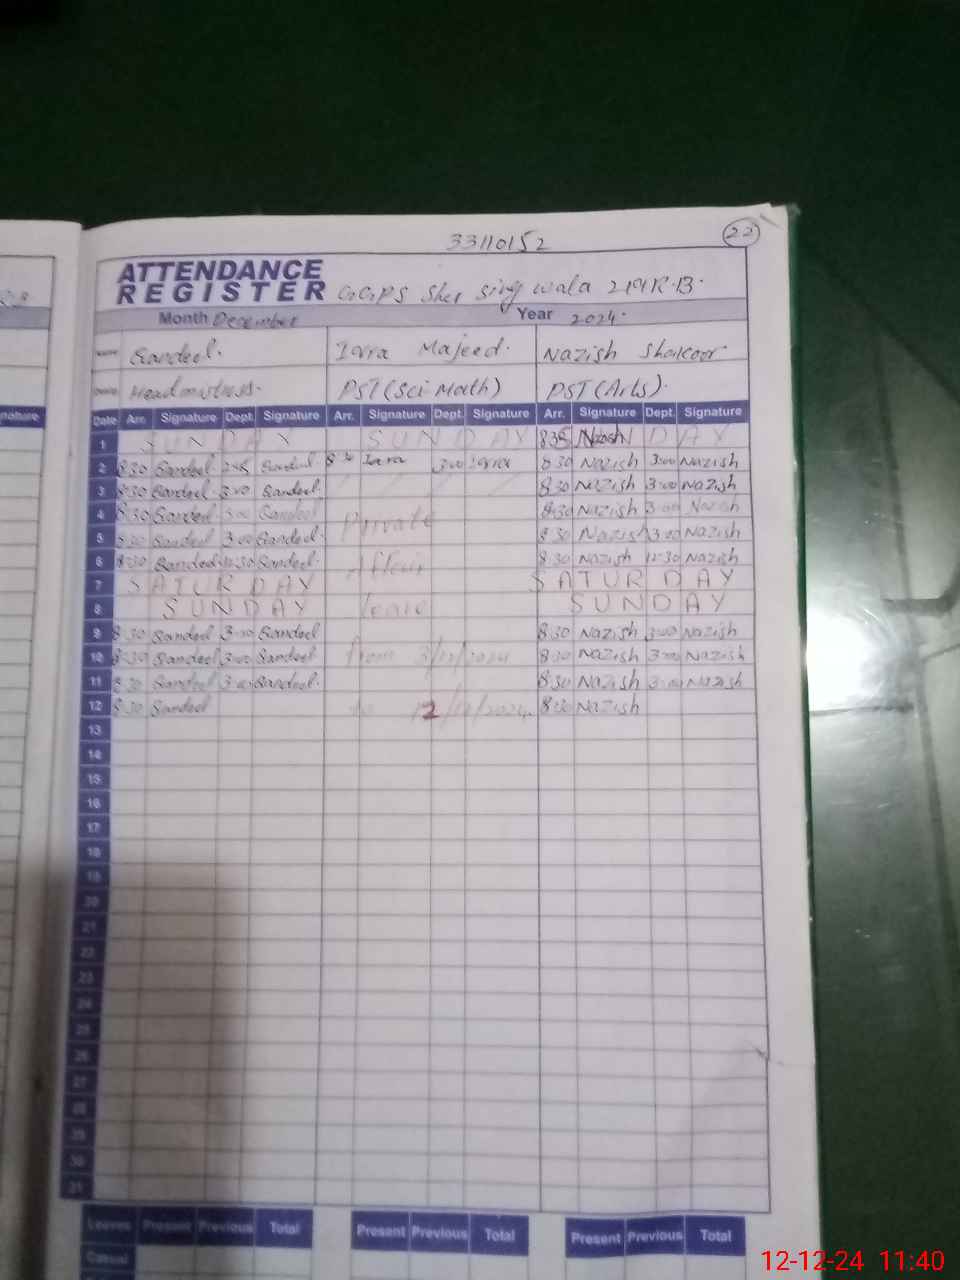 33110152
22
ATTENDANCE
REGISTER GGPS Sher Sing wala 219 R.B.
Month December Year 2024.
Name Qandeel. Iqra Majeed. Nazish Shakoor
Headmistress. PST (Sci-Math) PST (Arts).
Date Arr. Signature Dept. Signature Arr. Signature Dept. Signature Arr. Signature Dept. Signature
1 SUNDAY SUNDAY 835 Nazish DAY
2 8:30 Qandeel. Qandeel. 8:30 Iqra 3:00 Iqra 8:30 Nazish 3:00 Nazish
3 8:30 Qandeel. 3:00 Qandeel. 8:30 Nazish 3:00 Nazish
4 8:30 Qandeel 3:00 Qandeel Private 8:30 Nazish 3:00 Nazish
5 8:30 Qandeel 3:00 Qandeel. 8:30 Nazish 3:00 Nazish
6 8:30 Qandeel 12:30 Qandeel. Affair 8:30 Nazish 12:30 Nazish
7 SATURDAY SATURDAY
8 SUNDAY leave SUNDAY
9 8:30 Qandeel 3:00 Qandeel 8:30 Nazish 3:00 Nazish
10 8:30 Qandeel 3:00 Qandeel from 3/12/2024 8:30 Nazish 3:00 Nazish
11 8:30 Qandeel 3:00 Qandeel. 8:30 Nazish 3:00 Nazish
12 8:30 Qandeel to 12/12/2024. 8:30 Nazish
13
14
15
16
17
18
19
20
21
22
23
24
25
26
27
28
29
30
31
Leaves Present Previous Total Present Previous Total Present Previous Total
Casual
12-12-24 11:40